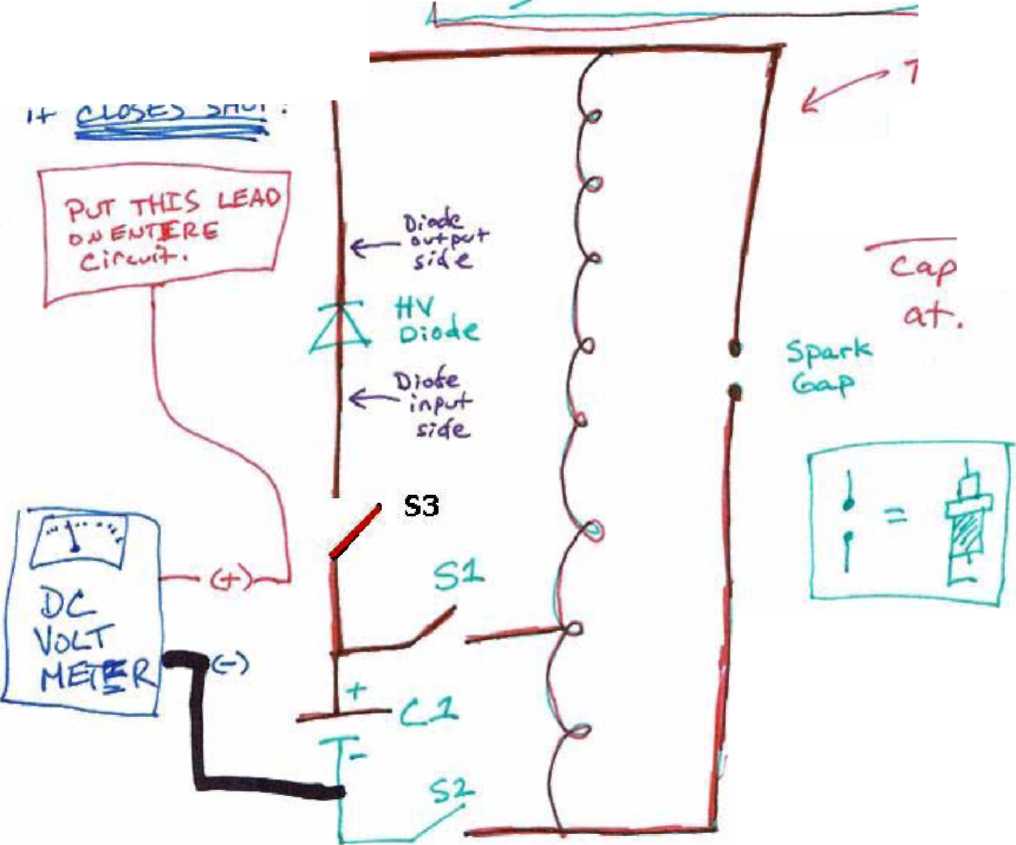 it CLOSES SHUT.
PUT THIS LEAD
ON ENTIRE
Circuit.
Diode
output
side
HV
Diode
Diode
input
side
Cap
at.
Spark
Gap
=
S3
S1
(+)
DC
VOLT
METER
(-)
+
C1
-
S2